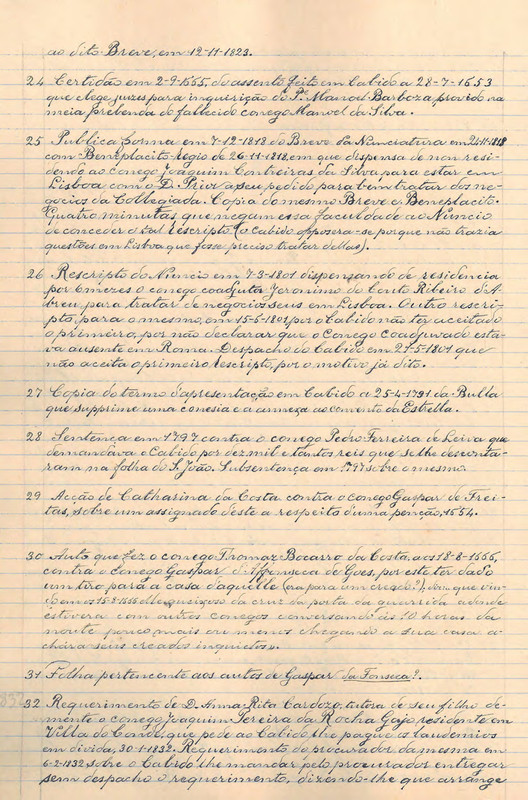 ao dito Breve, em 12-11-1823.
24 Certidão em 2-9-1665, do assento feito em Cabido a 28-7-1653
que elege juizes para inquirição do P.e Manoel Barboza provido na
meia prebenda do fallecido conego Manoel da Silva.
25 Publica forma em 7-12-1818 do Breve da Nunciatura em 24-11-1818
com Beneplacito regio de 26-11-1818, em que dispensa de non resi-
dendo ao Conego Joaquim Contreiras da Silva para estar em
Lisboa com o D. Prior a seu pedido para bem tratar dos ne-
gocios da Collegiada. Copia do mesmo Breve e Beneplacito.
Quatro minutas que negam essa faculdade ao Nuncio
de conceder o tal rescripto (o Cabido oppozera-se porque não trazia
questões em Lisboa que fosse preciso tratar dellas).
26 Rescripto do Nuncio em 7-3-1801 dispensando de residencia
por 6 mezes o conego coadjutor Jeronimo do Couto Ribeiro d'A-
breu, para tratar de negocios seus em Lisboa. Outro rescri-
pto, para o mesmo, em 15-5-1801, por o Cabido não ter acceitado
o primeiro, por não declarar que o Conego coadjuvado esta-
va ausente em Roma. Despacho do Cabido em 27-5-1801 que
não aceita o primeiro rescripto, por o motivo já dito.
27 Copia do termo d'apresentação em Cabido a 25-4-1791 da Bulla
que supprime uma conesia e a annexa ao convento da Estrella.
28 Sentença em 1797 contra o conego Pedro Ferreira de Leiva que
demandava o Cabido por dez mil e tantos reis que se lhe desconta-
ram na folha do S. João. Subsentença em 1797 sobre o mesmo.
29 Acção de Catharina da Costa contra o Conego Gaspar de Frei-
tas, sobre um assignado d'este a respeito d'uma penção, 1554.
30 Auto que fez o conego Thomaz Bocarro da Costa, aos 18-8-1666,
contra o Conego Gaspar d'Affonseca de Goes, por este ter dado
um tiro para a casa d'aquelle (era para um creado?), que vin-
do em os 15-8-1666 da cruz da porta da guarrida adonde
estivera com outros conegos conversando ás 10 horas da
noite pouco mais ou menos chegando a sua casa a-
chára seus creados inquietos».
31 Folha pertencente aos autos de Gaspar da Fonseca?.
32 Requerimento de D. Anna Rita Cardozo, tutora de seu filho de-
mente o conego Joaquim Pereira da Rocha Gajo residente em
Villa do Conde, que pede ao Cabido lhe pague os laudemios
em divida, 30-1-1832. Requerimento do procurador da mesma em
6-2-1832 sobre o Cabido lhe mandar pelo procurador entregar
sem despacho o requerimento, dizendo-lhe que arranje